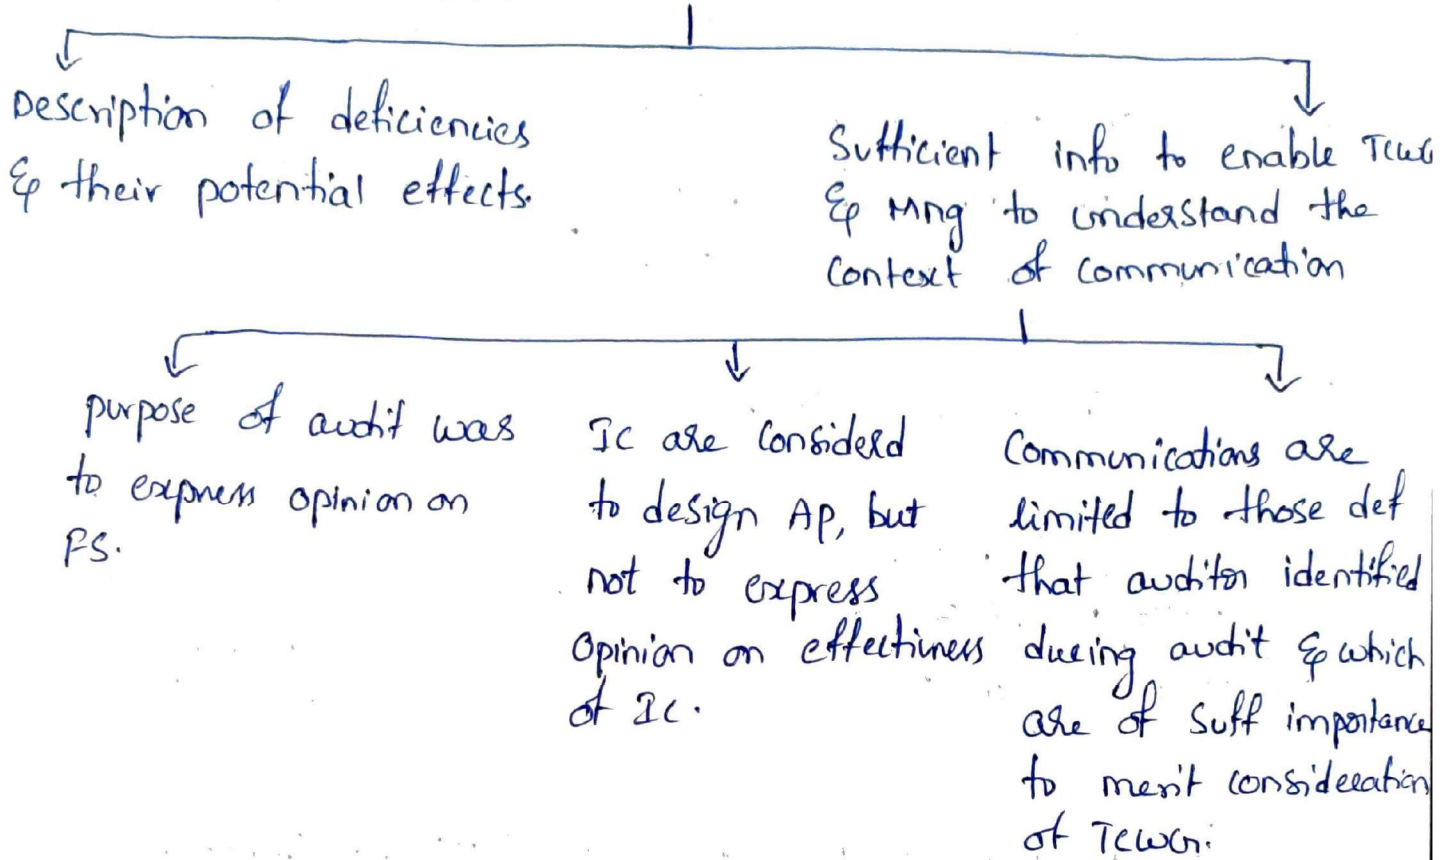 Description of deficiencies
& their potential effects.
Sufficient info to enable TCWG
& Mng to understand the
Context of communication
purpose of audit was
to express opinion on
FS.
IC are considerd
to design AP, but
not to express
opinion on effectivness
of IC.
Communications are
limited to those def
that auditor identified
during audit & which
are of suff importance
to merit consideration
of TCWG.